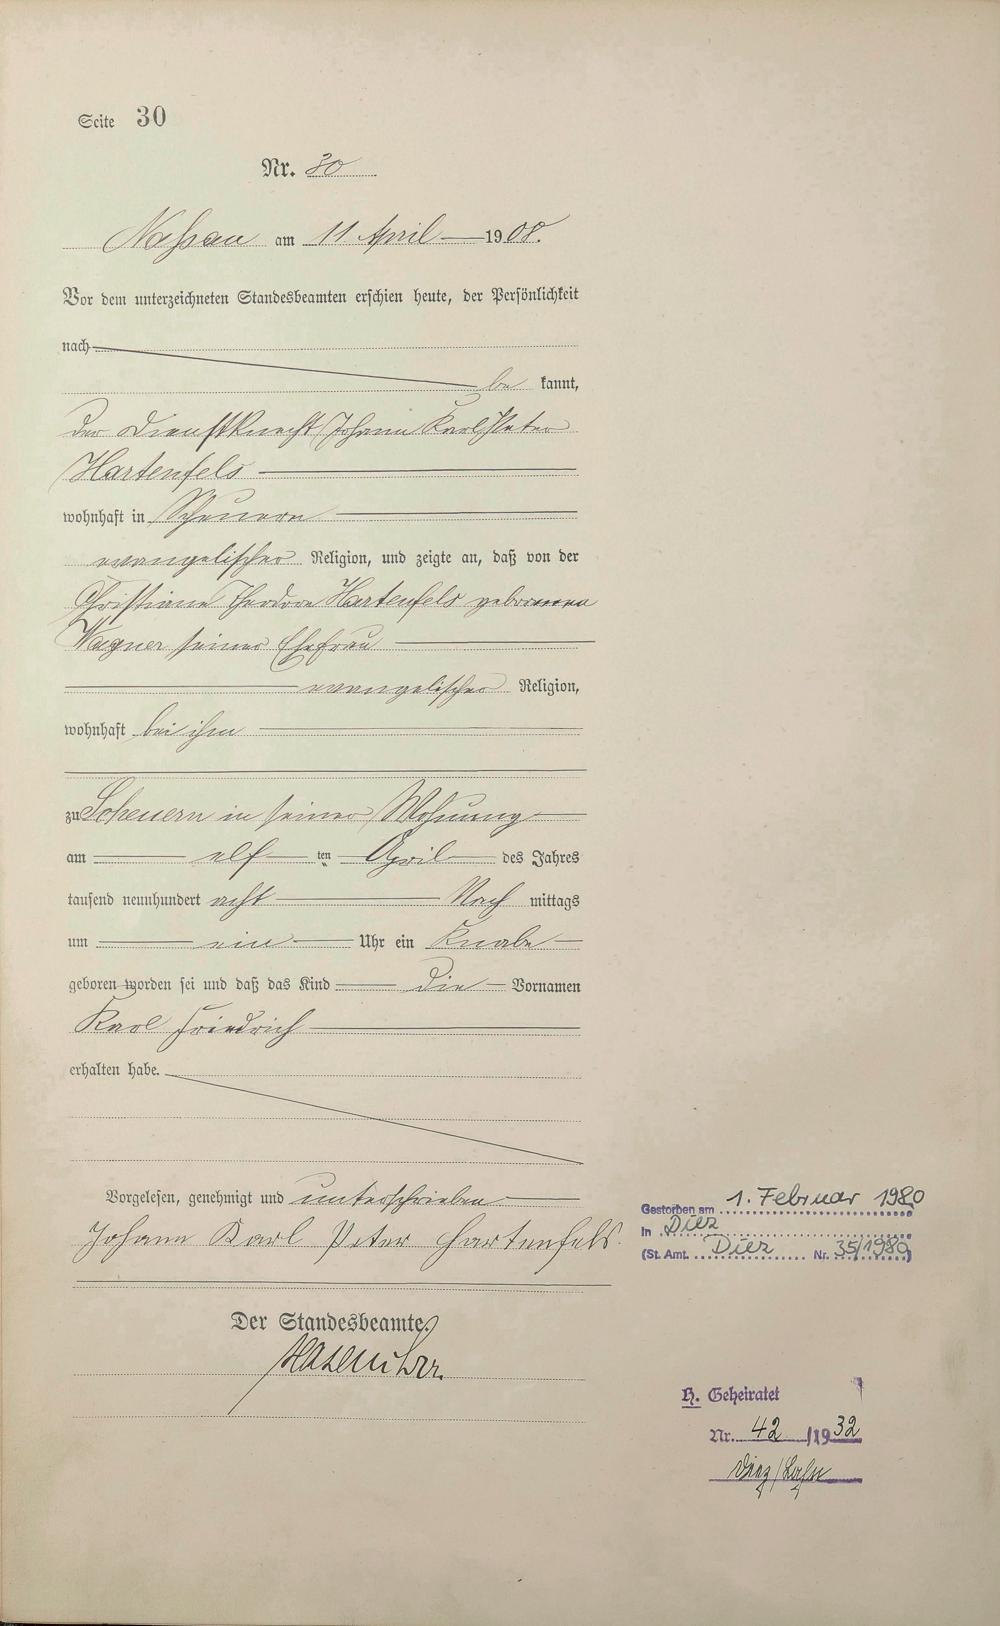 Seite 30
Nr. 30
Nassau am 11 April 1908.
Vor dem unterzeichneten Standesbeamten erschien heute, der Persönlichkeit
nach
be kannt,
der Dienstknecht Johann Karl Peter
Hartenfels
wohnhaft in Scheuern
evangelischer Religion, und zeigte an, daß von der
Christiane Theodore Hartenfels geborenen
Wagner seiner Ehefrau
evangelischer Religion,
wohnhaft bei ihm
zu Scheuern in seiner Wohnung
am elf ten April des Jahres
tausend neunhundert acht Nach mittags
um ein Uhr ein Knabe
geboren worden sei und daß das Kind die Vornamen
Karl Friedrich
erhalten habe.
Vorgelesen, genehmigt und unterschrieben
Johann Karl Peter Hartenfels.
Der Standesbeamte.
Gestorben am 1. Februar 1980
in Diez
(St. Amt. Diez Nr. 35/1980)
H. Geheiratet
Nr. 42 /1932
Diez/Lahn